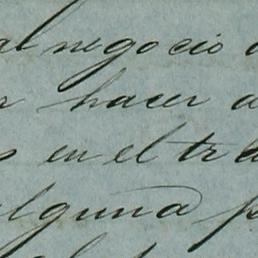 al negocio
hacer a
en el tra
alguna p